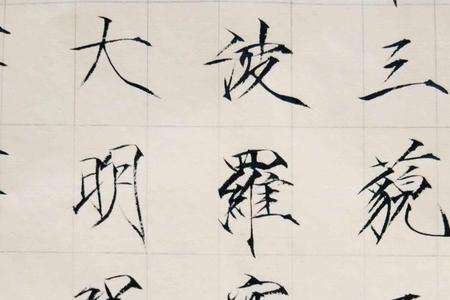 三藐
波羅
大明